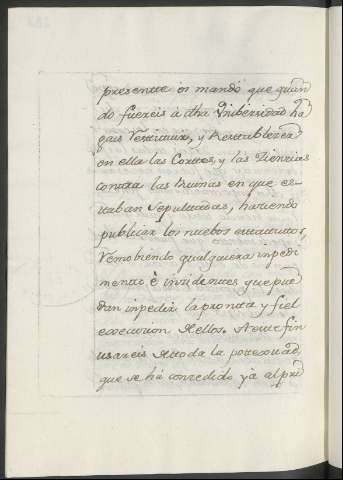 presente os mando que quan
do fuereis a dha Vnibersidad ha
gais Restituir, y Restablezcas
en ella las Cortes, y las Ciencias
contra las Ruinas en que es-
taban sepultadas, haciendo
publicar los nuebos estatutos,
Remobiendo qualquiera inpedi
mento è insidentes que pue
dan inpedir la pronta y fiel
execucion dellos. A este fin
usareis de toda la potestad,
que se há concedido yà al pri